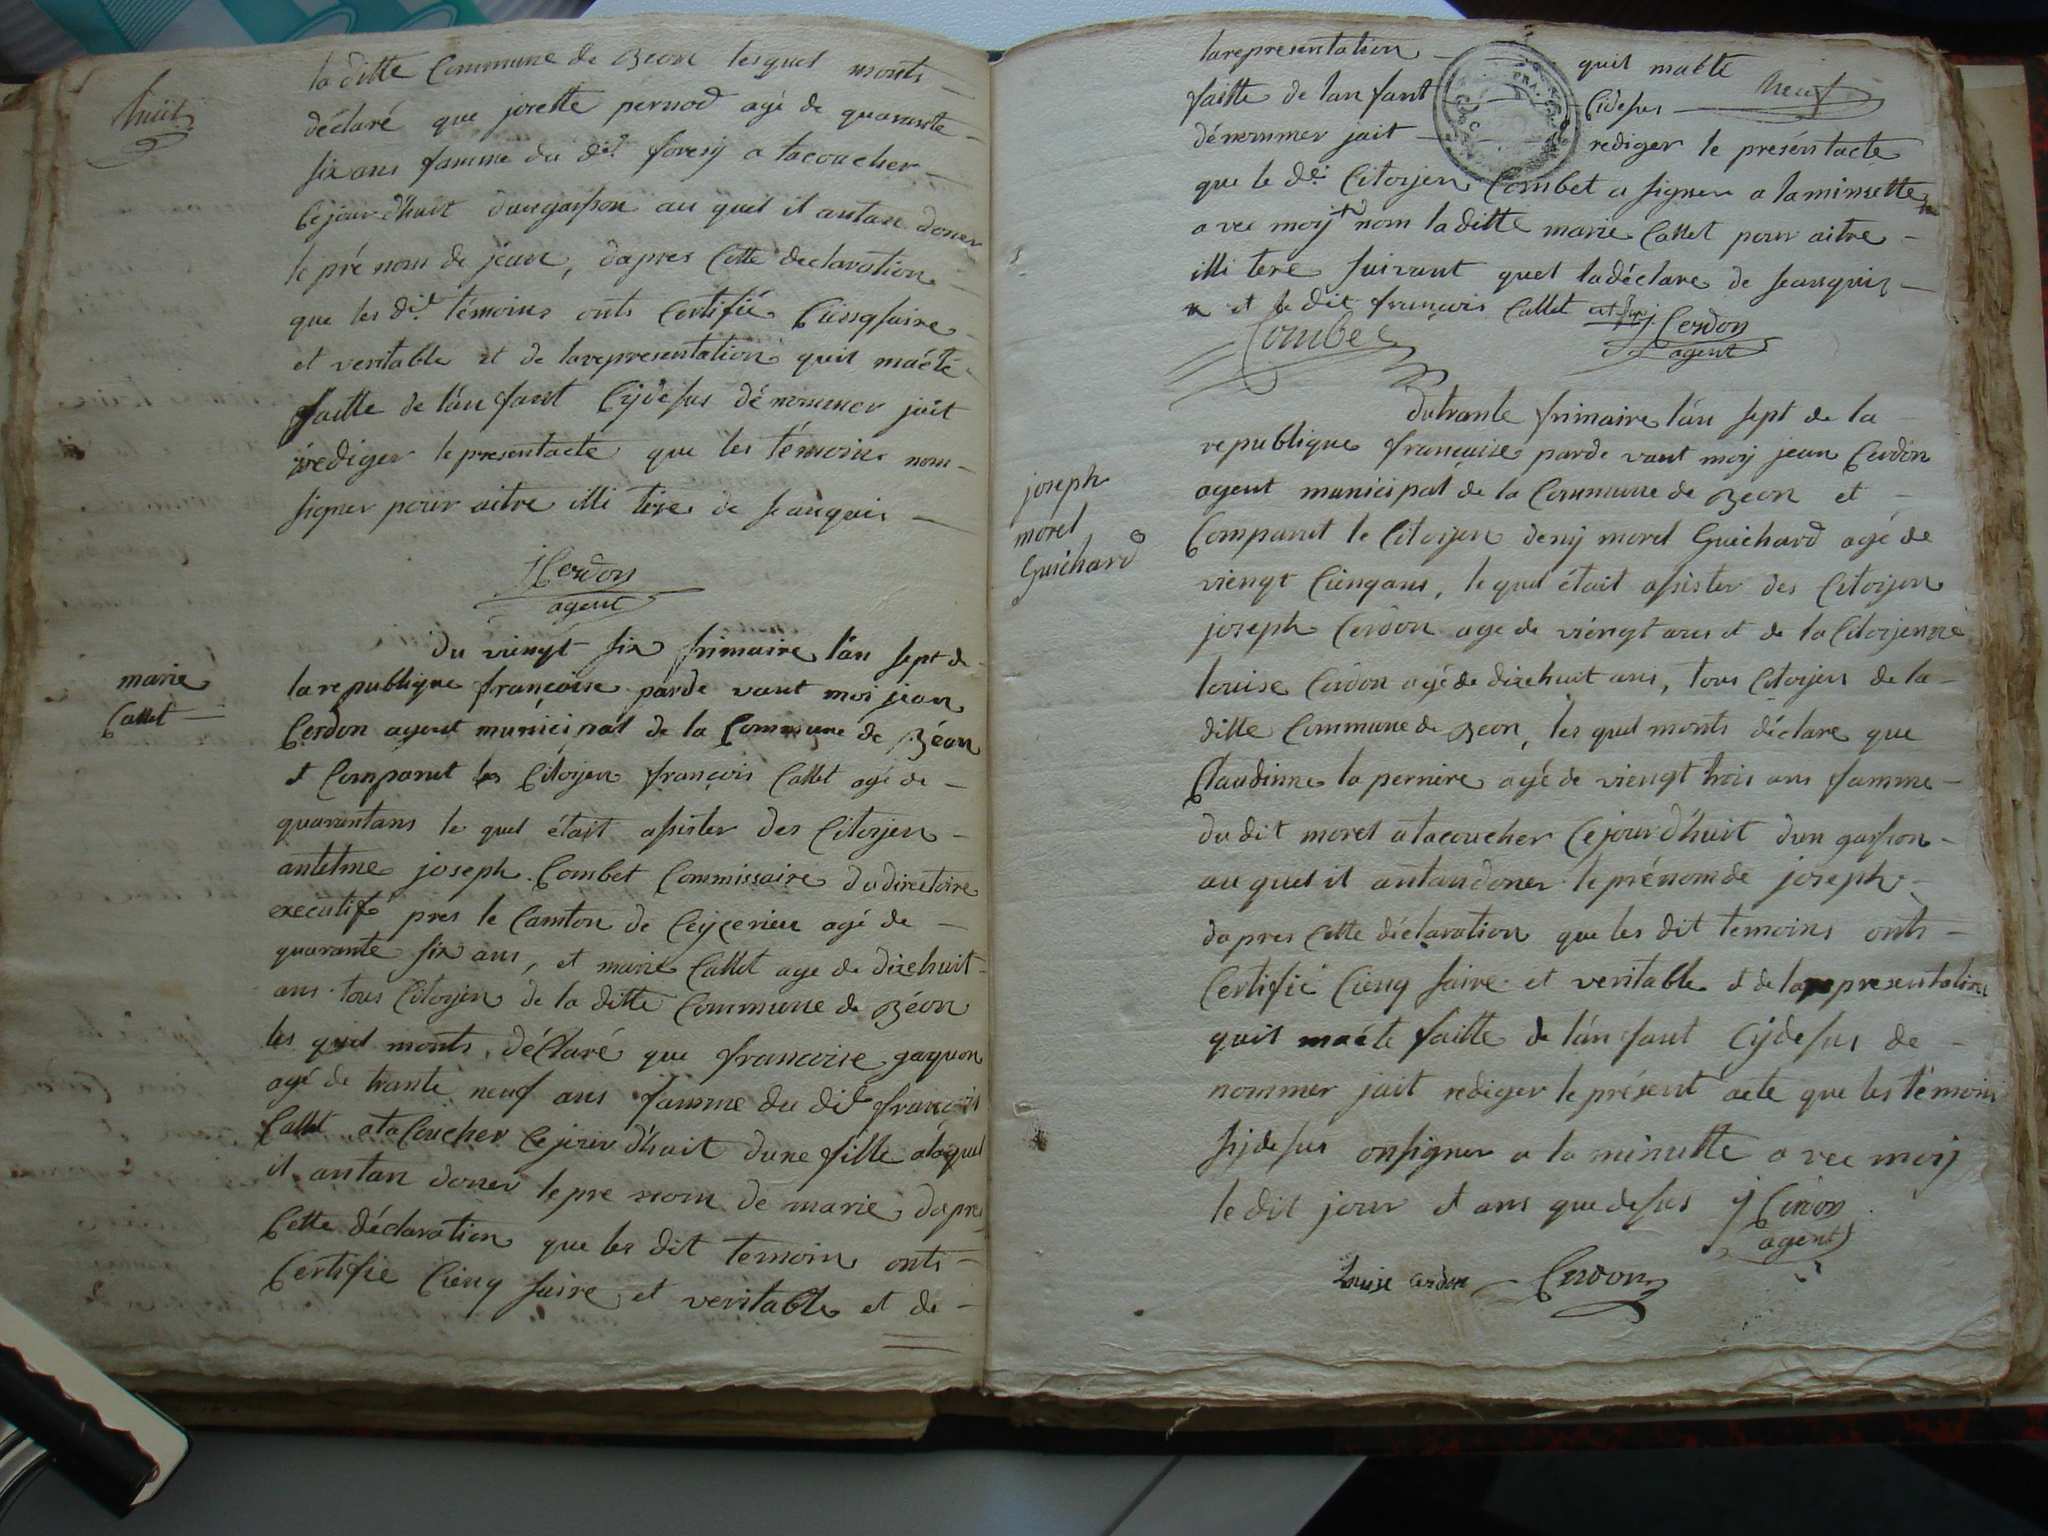 huit
la ditte Commune de Beon lesquel monts
déclaré que josette pernod agé de quarante
six ans famme du dit forest a tacoucher
Cejour d'huit dungarson au quel il antan doner
le pré nom de jean, dapres Cette declaration
que les dit témoins onts Certifié Ciensqsaire
et veritable et de larepresentation quil maéte
faitte de l'an fant Cijdesus dé nommer jait
rediger le presentacte que les témoins nom
signer pour aitre illi tere de seanquis
j Cerdon
agent
marie
Callet
Du viengt six frimaire l'an sept de
la republique françoise parde vant moi jean
Cerdon agent municipal de la Commune de Béon
et Comparut les Citoijen françois Callet agé de
quarantans le quel était asister des Citoijen
antelme joseph Combet Commissaire dudirectoire
executif pres le Canton de Ceijcerieu agé de
quarante six ans, et marie Callet age de dixehuit
ans tous Citoijen de la ditte Commune de Béon
les quel monts déClaré que francoise gaquon
agé de trante neuf ans famme du dit françois
Callet ata Coucher Cejour d'huit dune fille alaquel
il antan doner le pre nom de marie dapres
Cette déclaration que les dit temoin onts
Certifié Cienq saire et veritable et de
neuf
larepresentation quil maéte
faitte de lanfant Cidesus
dénommer jait rediger le présentacte
que le dit Citoijen Combet a signer a laminutte
avec moij et nom laditte marie Callet pour aitre
illi tere suivant quel ladéclare de seanquis
et le dit françois Callet
j Cerdon
agent
Combet
joseph
morel
Guichard
Dutrante frimaire l'an sept de la
republique françaisse parde vant moij jean Cerdon
agent municipal de la Commune de Beon et
Comparut le Citoijen denij morel Guichard agé de
viengt Cienqans, le quel était asister des Citoijen
joseph Cerdon age de viengt ans et de la Citoijenne
louise Cerdon agé de dixehuit ans, tous Citoijen de la
ditte Commune de Beon, les quel monts déclare que
Claudinne la perriere agé de viengt trois ans famme
du dit morel atacoucher Cejour d'huit dun garson
au quel il antandoner le prénom de joseph
dapres Cette déclaration que les dit temoins onts
Certifié Cienq saire et veritable et de larepresentation
quil maéte faitte de l'an fant Cijdesus de
nommer jait rediger le présent acte que les témoins
sijdesus onsigner a la minutte avec moij
le dit jour et ans que desus j Cerdon
agent
Louise cerdon Cerdon